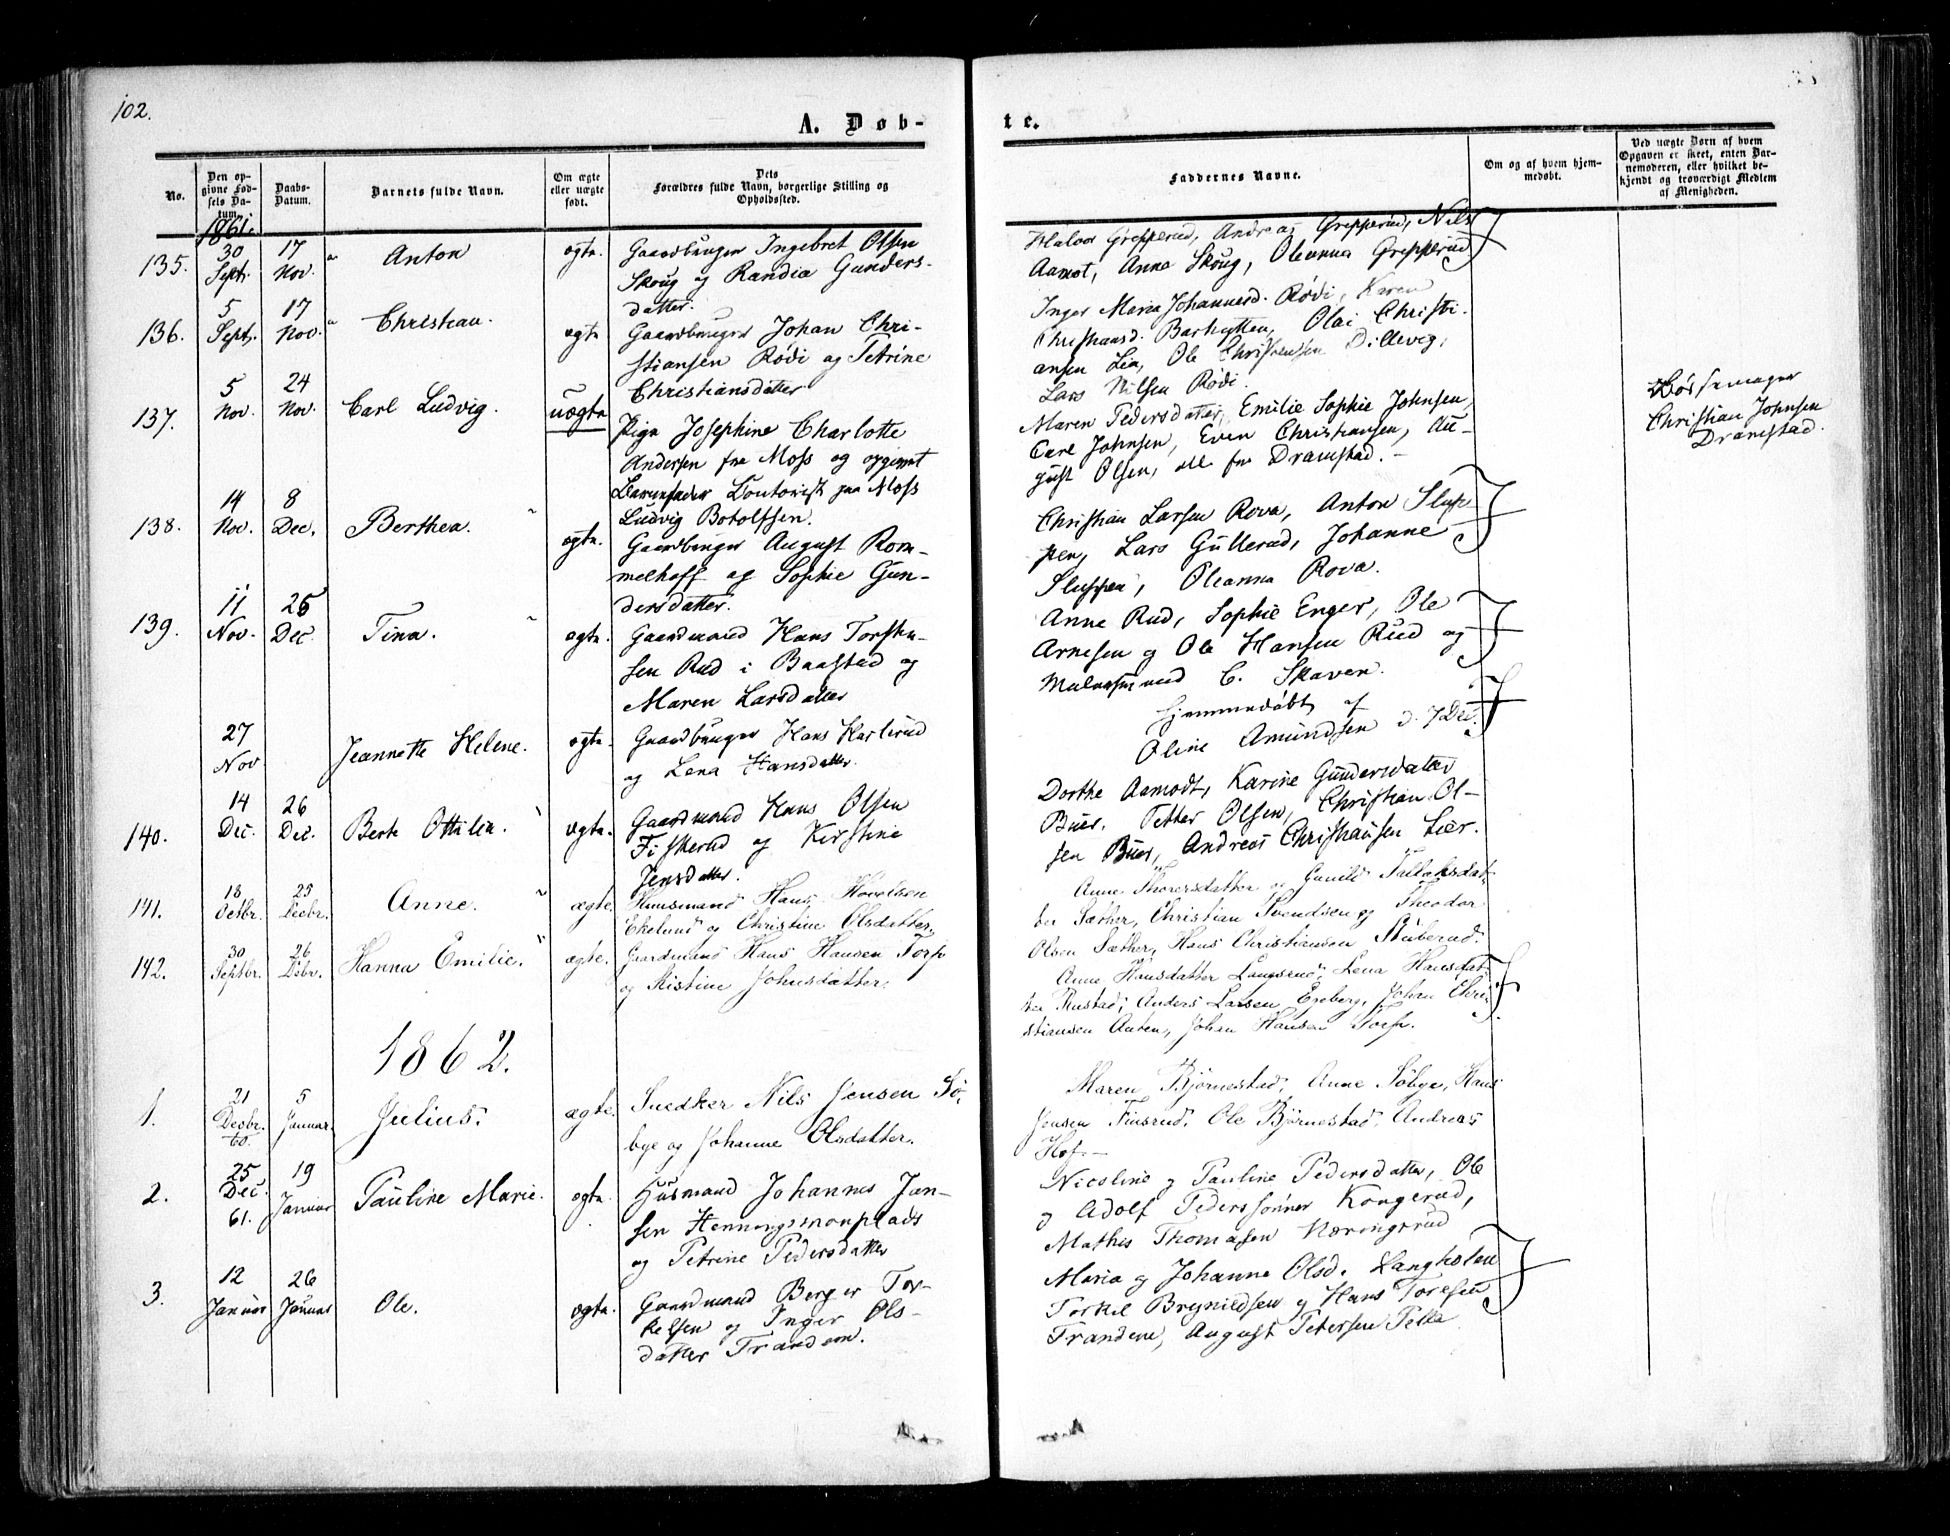 102.
A. Døb-
te.
No.
Den op-
givne Fød-
sels Da-
tum.
Daabs-
Datum.
Barnets fulde Navn.
Om ægte
eller uægte
født.
Dets
Forældres fulde Navn, borgerlige Stilling og
Opholdssted.
Faddernes Navne.
Om og af hvem hjem-
medøbt.
Ved uægte Børn af hvem
Opgaven er skeet, enten Bar-
nemoderen, eller hvilket be-
kjendt og troværdigt Medlem
af Menigheden.
1861.
135.
30
Sept.
17
Nov.
Anton
ægte.
Gaardbruger Ingebret Olsen
Skoug og Randia Gunders-
datter.
Halvor Grepperud, Andreas Grepperud, Nils
Aamot, Anne Skoug, Oleanna Grepperud
136.
5
Sept.
17
Nov.
Christian.
ægte
Gaardbruger Johan Chri-
stiansen Rödi og Petrine
Christiansdatter
Inger Maria Johannesd. Rödi, Karen
Christiansd. Barhytten, Olai Christi-
ansen Lia, Ole Christensen Dillevig,
Lars Nilsen Rödi.
137.
5
Nov.
24
Nov.
Carl Ludvig.
uægte
Pige Josephine Charlotte
Andersen fra Moss og opgivet
Barnefader Contorist paa Moss
Ludvig Botolfsen.
Maren Pedersdatter, Emilie Sophie Johnsen,
Carl Johnsen, Even Christiansen, Au-
gust Olsen, alle fra Dramstad.
Bössemager
Christian Johnsen
Dramstad.
138.
14
Nov.
8
Dec.
Berthea.
ægte.
Gaardbruger August Rom-
melhoff og Sophie Gun-
dersdatter.
Christian Larsen Rova, Anton Slup-
pen, Lars Gullerud, Johanne
Sluppen, Oleanna Rova.
139.
11
Nov.
25
Dec.
Tina.
ægte.
Gaardmand Hans Torsten-
sen Rud i Baastad og
Maren Larsdatter
Anne Rud, Sophie Enger, Ole
Arnesen og Ole Hansen Rud og
C. Skaven.
27
Nov
Jeannette Helene.
ægte.
Gaardbruger Hans Karlsrud
og Lena Hansdatter.
Hjemmedöbt af
Oline Amundsen d. 7 Dec.
140.
14
Dec.
26
Dec.
Berte Ottilia.
ægte.
Gaardmand Hans Olsen
Fiskerud og Kirstine
Jensdatter.
Dorthe Aamodt, Karine Gundersdatter
Buer, Petter Olsen, Christian Ol-
sen Buer, Andreas Christiansen Lier.
141.
18
Octbr.
25
Decbr.
Anne.
ægte.
Huusmand Hans Hovelsen
Ekelund og Christine Olsdatter.
Anne Thorersdatter og Gunild Tallaksdat-
ter Sæther, Christian Svendsen og Theodor
Olsen Sæther, Hans Christiansen Stuberud.
142.
30
Septbr.
26
Dcbr.
Hanna Emilie.
ægte.
Gaardmand Hans Hansen Torp
og Kistine Johnsdatter.
Anne Hansdatter Langsend, Lena Hansdat-
ter Rustad, Anders Larsen Egeberg, Johan Chri-
stiansen Auten, Johan Hansen Torp.
1862.
1.
21
Decbr.
60.
5
Januar.
Julius.
ægte.
Snedker Nils Jensen Sö-
bye og Johanne Olsdatter.
Maren Björnestad, Anne Söbye, Hans
Jensen Finsrud, Ole Björnestad, Andreas
Hof.
2.
25
Dec.
61.
19
Januar
Pauline Marie.
ægte.
Husmand Johannes Jan-
sen Henningsmonplads
og Petrine Pedersdatter
Nicoline og Pauline Pedersdatter, Ole
og Adolf Pederssönner Kongerud,
Mathis Thomasen Næringsrud
3.
12
Januar
26
Januar
Ole.
ægte.
Gaardmand Berger Tor-
kelsen og Inger Ols-
datter Trandem.
Maria og Johanne Olsd. Langholen
Torkel Brynildsen og Hans Toresen
Trandem, August Petersen Pelka